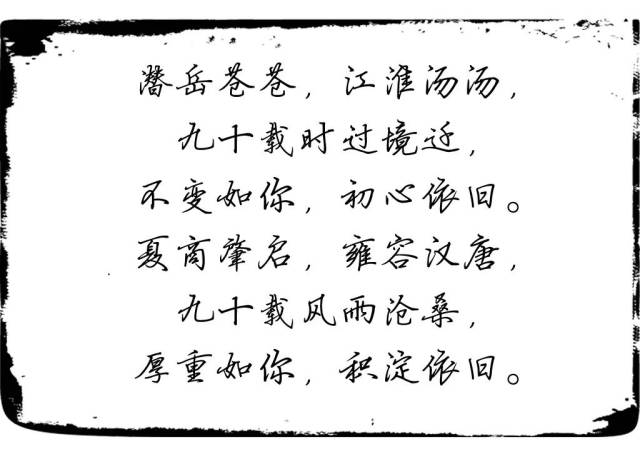 潜岳苍苍，江淮汤汤，
九十载时过境迁，
不变如你，初心依旧。
夏商肇启，雍容汉唐，
九十载风雨沧桑，
厚重如你，积淀依旧。